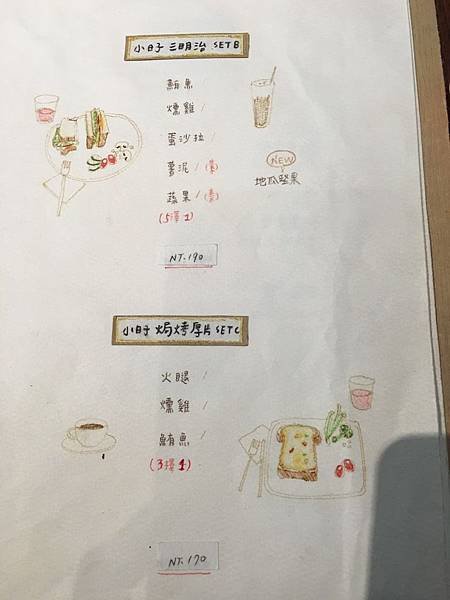 小日子 三明治 SET B
鮪魚
燻雞 /
蛋沙拉 /
薯泥 / (素)
蔬果 / (素)
(5擇1)
NEW
地瓜堅果
NT.190
小日子 焗烤厚片 SET C
火腿 /
燻雞 /
鮪魚 /
(3擇1)
NT.170